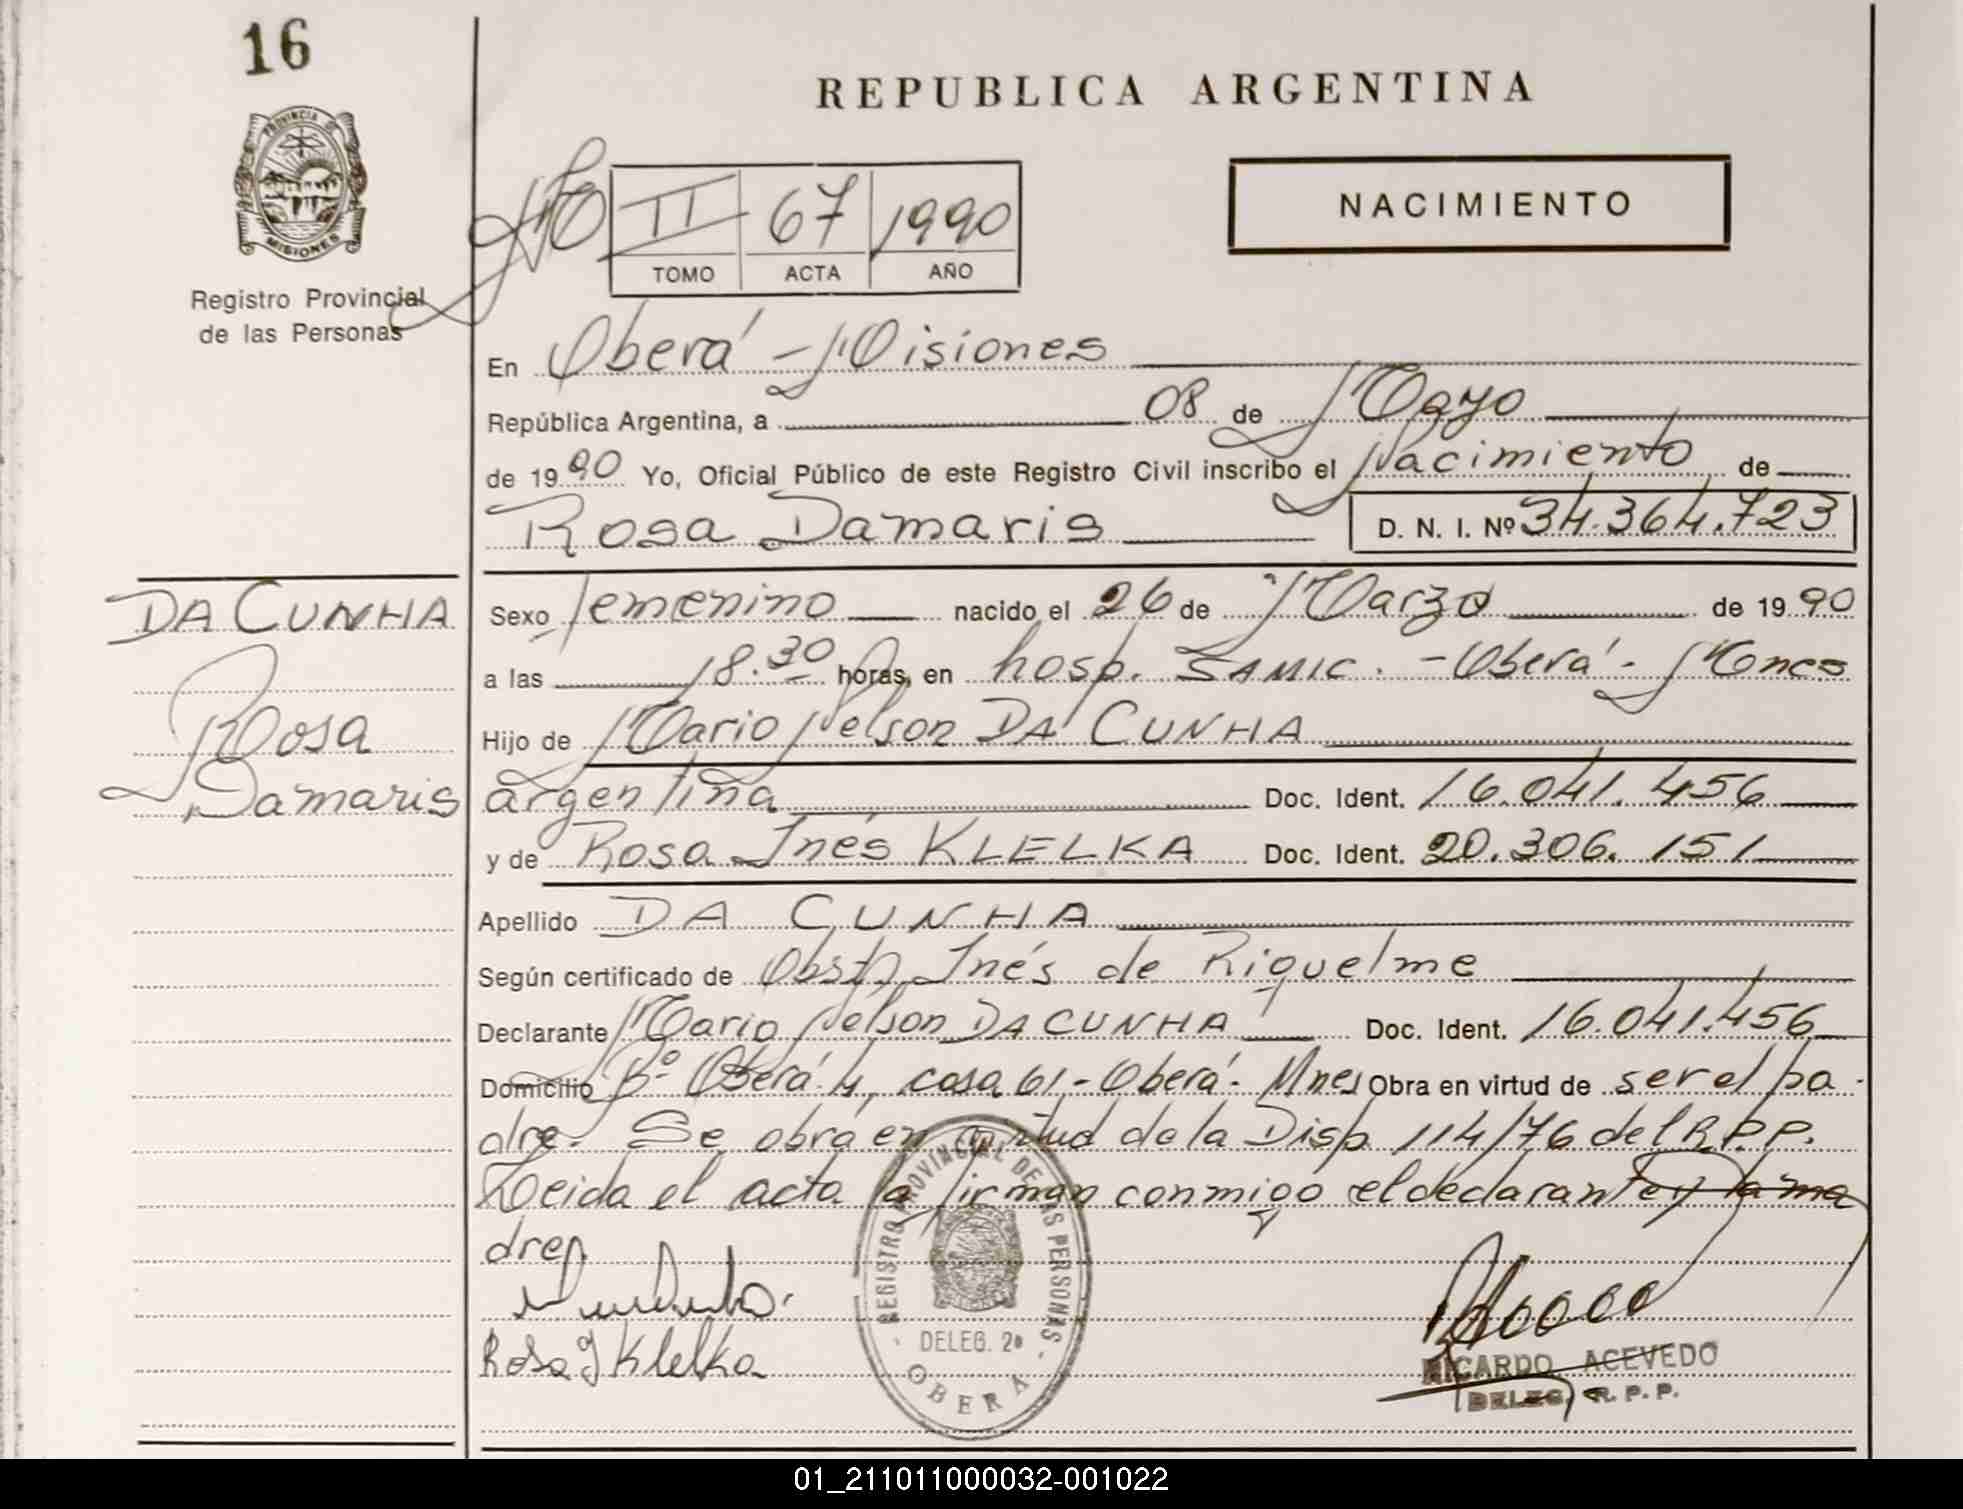 16
REPUBLICA ARGENTINA
PROVINCIA DE
MISIONES
Registro Provincial
de las Personas
II 67 1990
TOMO ACTA AÑO
NACIMIENTO
En Oberá - Misiones
República Argentina, a 08 de Mayo
de 1990 Yo, Oficial Público de este Registro Civil inscribo el Nacimiento de
Rosa Damaris D. N. I. Nº 34.364.723
DA CUNHA
Rosa
Damaris
Sexo femenino nacido el 26 de Marzo de 1990
a las 18.30 horas, en hosp. SAMIC. - Oberá - Mones
Hijo de Mario Nelson DA CUNHA
argentina Doc. Ident. 16.041.456
y de Rosa Inés KLELKA Doc. Ident. 20.306.151
Apellido DA CUNHA
Según certificado de Obsta Inés de Riquelme
Declarante Mario Nelson DA CUNHA Doc. Ident. 16.041.456
Domicilio Bº Oberá 4, casa 61 - Oberá - Mnes Obra en virtud de ser el pa
dre. Se obra en virtud de la Disp. 114/76 del R.P.P.
Leida el acta la firman conmigo el declarante y la ma
dre
Rosa I Klelka
REGISTRO PROVINCIAL DE LAS PERSONAS
DELEG. 2a
OBERA
RICARDO ACEVEDO
DELEG. R. P. P.
01_211011000032-001022